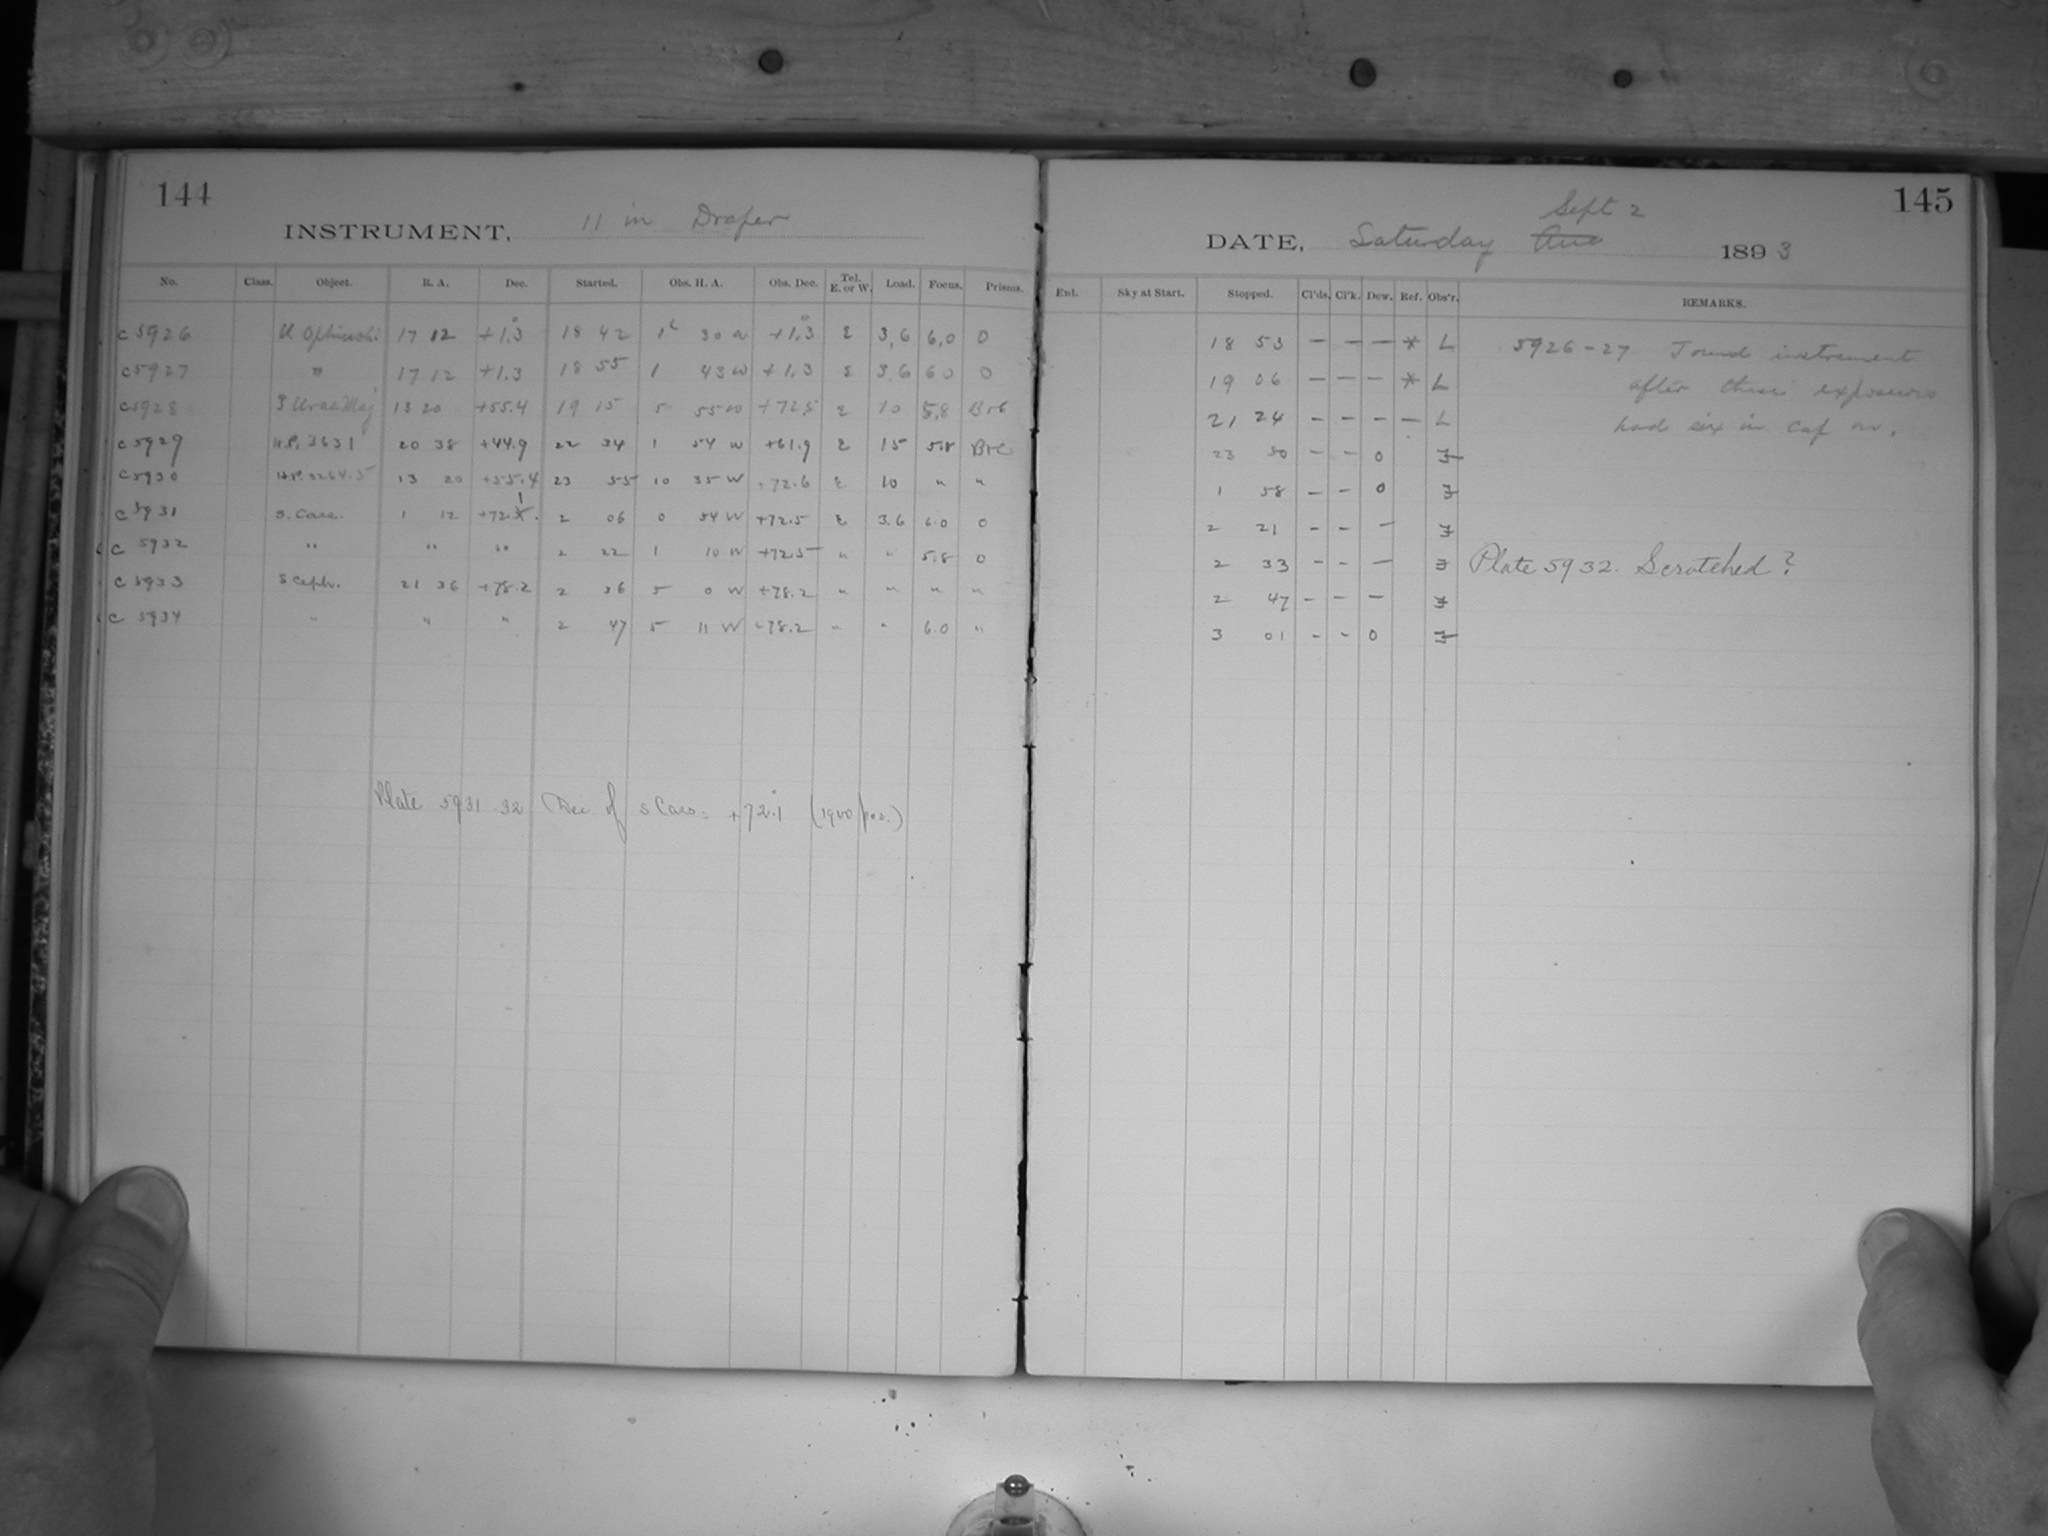 144
INSTRUMENT, 11 in Draper
No. Class. Object. R. A. Dec. Started. Obs. H. A. Obs. Dec. Tel. E. or W. Load. Focus. Prisms.
c 5926 U Ophiuchi 17 12 +1°.3 18 42 1 30 W +1°.3 E 3.6 6.0 0
c 5927 " 17 12 +1.3 18 55 1 43 W +1.3 E 3.6 6.0 0
c 5928 13 20 +55.4 19 15 5 55 W +72.5 E 10 5.8
c 5929 H.P. 3631 20 38 +44.9 22 34 1 54 W +61.9 E 15 5.8
c 5930 13 20 +55.4 23 55 10 35 W +72.6 E 10 " "
c 5931 S. Cass. 1 12 +72.1 2 06 0 54 W +72.5 E 3.6 6.0 0
c 5932 " " " 2 22 1 10 W +72.5 " " 5.8 0
c 5933 S Ceph. 21 36 +78.2 2 36 5 0 W +78.2 " " " "
c 5934 " " " 2 47 5 11 W +78.2 " " 6.0 "
Plate 5931 32 Dec of S Cass = +72°.1 (1900 pos.)
145
Sept 2
DATE, Saturday Aug 1893
Ent. Sky at Start. Stopped. Cl'ds. Cl'k. Dew. Ref. Obs'r. REMARKS.
18 53 — — — * L 5926-27 Found instrument
19 06 — — — * L after these exposures
21 24 — — — — L had six in cap on.
23 50 — — 0 F
1 58 — — 0 F
2 21 — — — F
2 33 — — — F Plate 5932. Scratched?
2 47 — — — F
3 01 — — 0 F